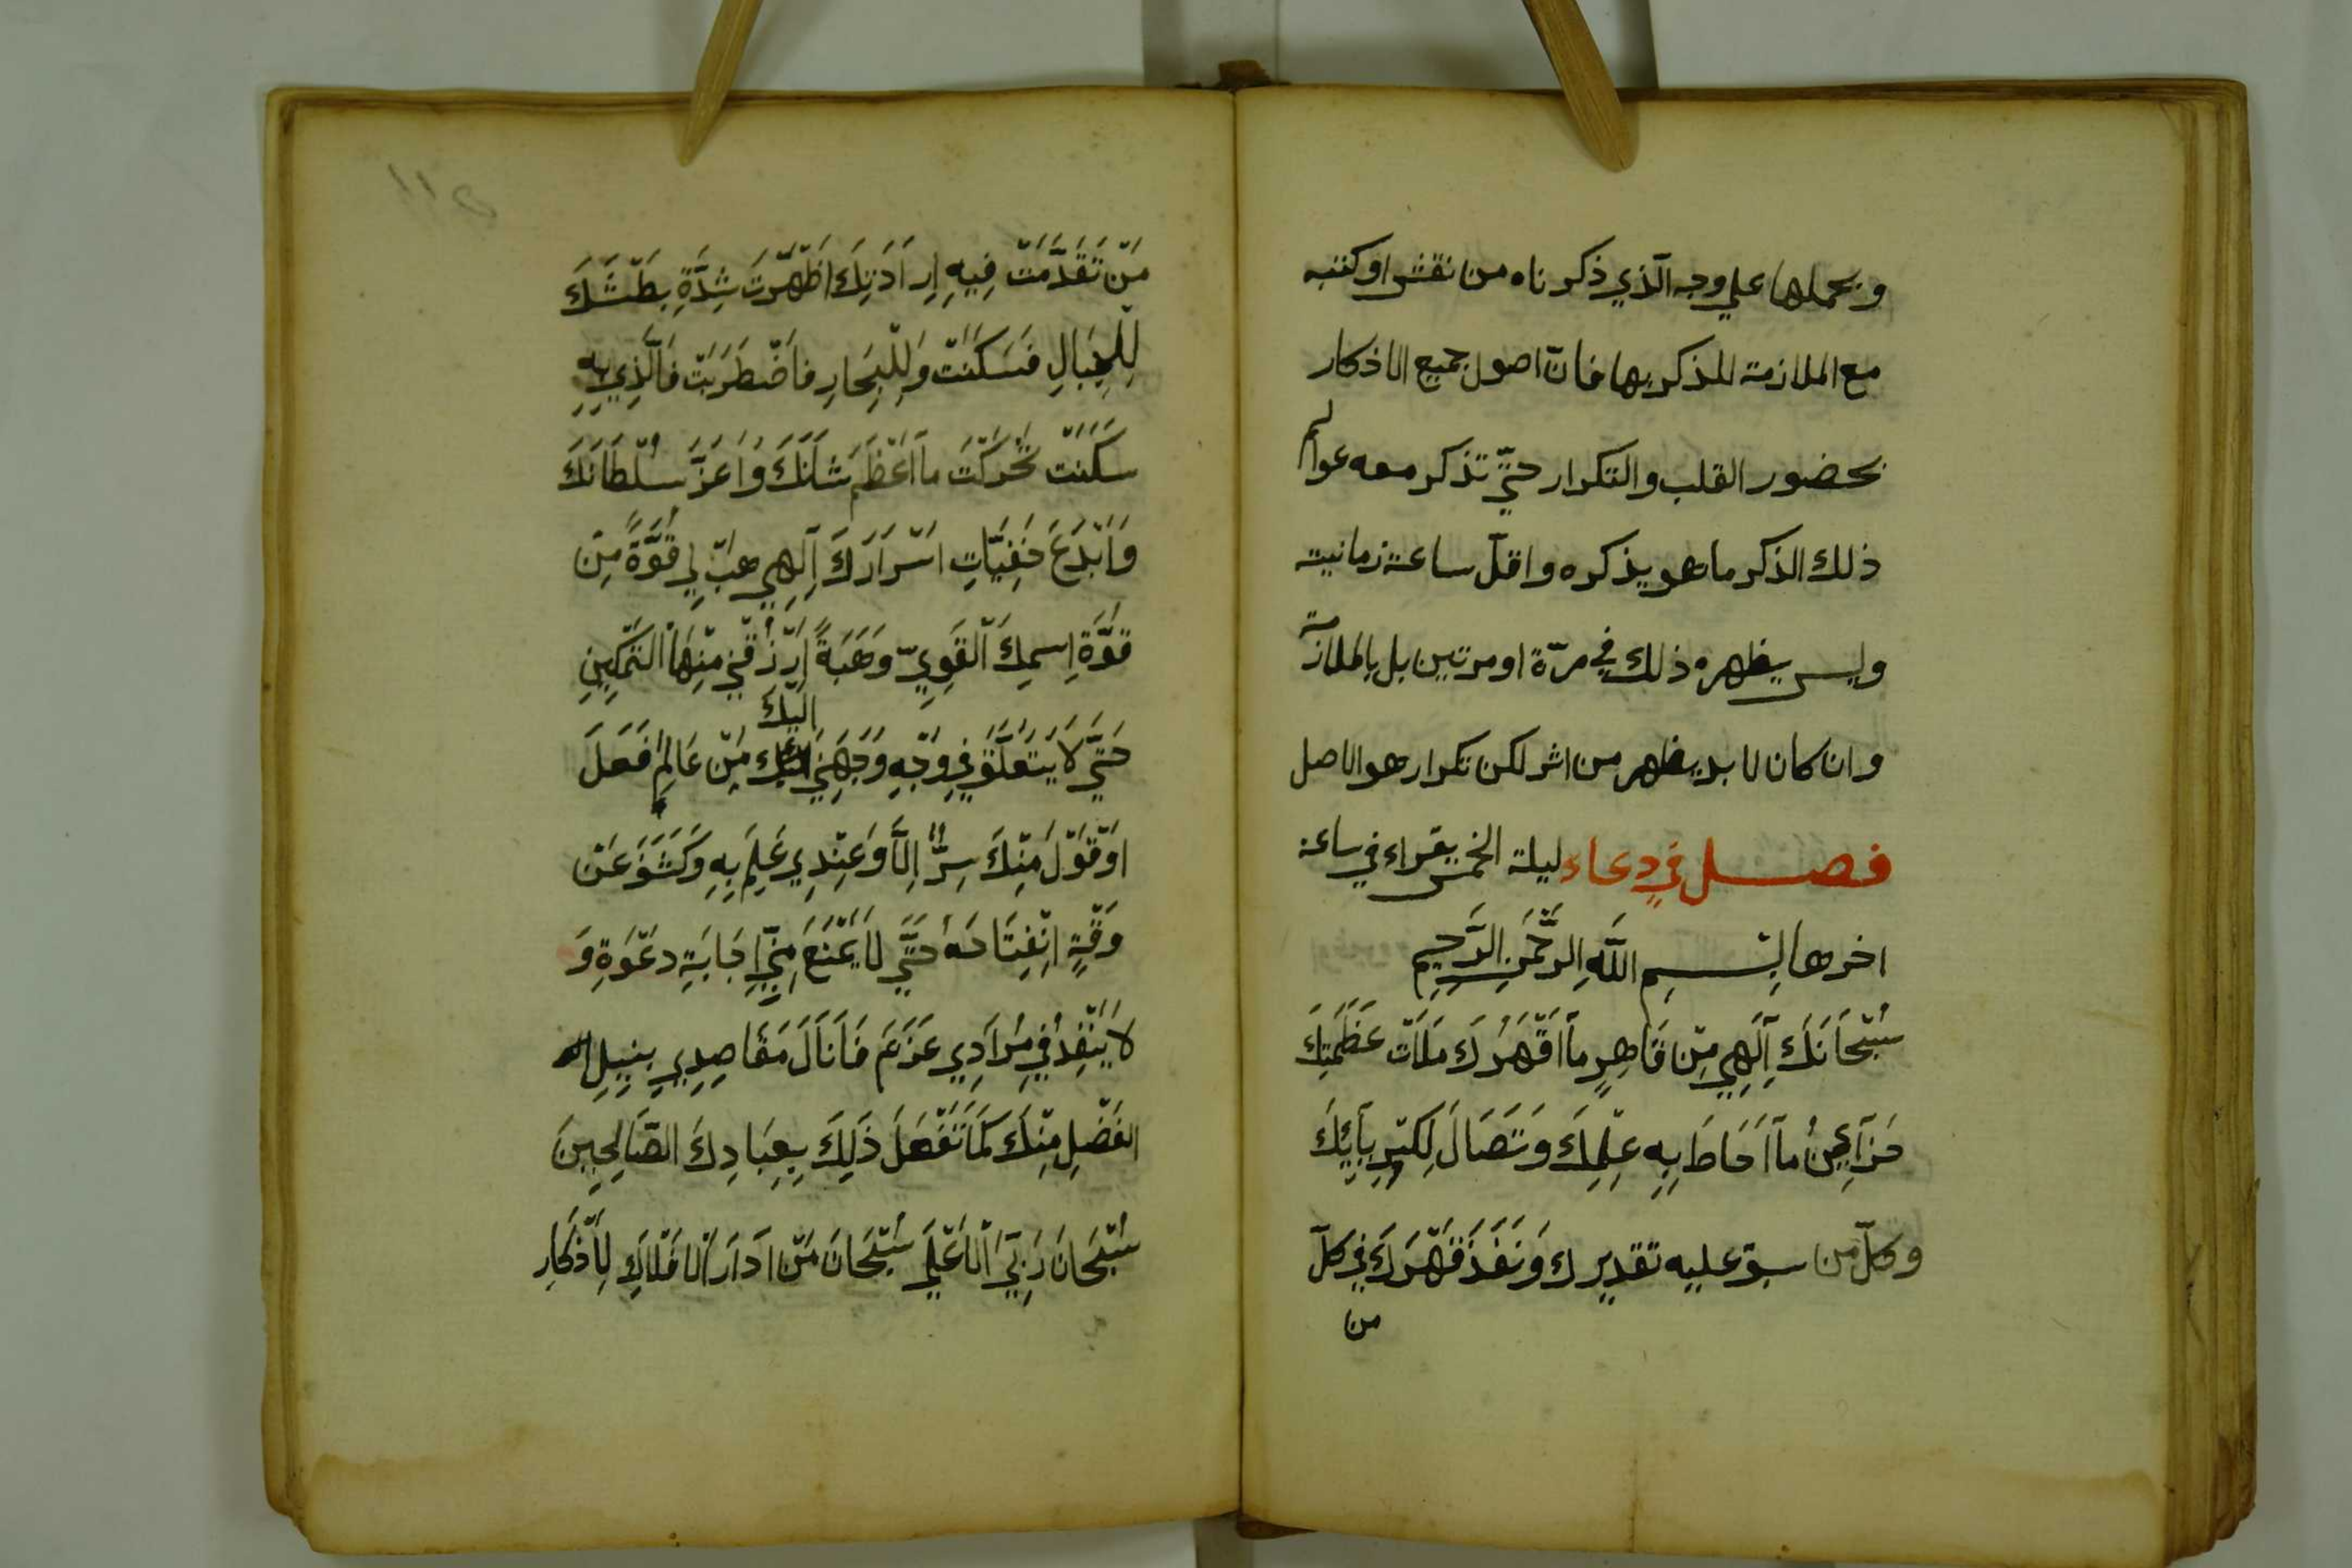 ويحملها علي وجه الّذي ذكرناه من نقش او كتبه
مع الملازمة للذكر بها فانّ اصول جميع الاذكار
بحضور القلب والتكرار حتّي تذكر معه عوالم
ذلك الذكر ما هو يذكره واقلّ ساعة زمانية
وليس يظهره ذلك في مرّة او مرتين بل بالملازمة
وان كان لا بد يظهر من اثر لكن تكرار هو الاصل
فصل في دعاء ليلة الخمس يقراء في ساعة
اخرها بِسمِ اللَّهِ الرَّحْمَنِ الرَّحِيمِ
سُبْحَانَكَ اِلَهِي مِنْ قَاهِرٍ مَا اَقْهَرَكَ مَلَاَتْ عَظَمَتِكَ
مَا اَحَاطَ بِهِ عِلْمِكَ وَتَصَالَ
وكلّ من سبق عليه تقديرك وَنَفَذَ قَهْرَكَ في كلّ
من
مَنْ تَقَدَّمَتْ فِيهِ اِرَادَتِكَ اَظْهَرْتَ شِدَّةِ بَطْشَكَ
لِلْجِبَالِ فَسَكَنَتْ وَلِلْبِحَارِ فاَضْطَرَبَتْ فَالَّذِي بِهِ
سَكَنَتْ تحُرَكَتْ مَا اَعْظَم شَانَكَ وَاَعَزَّ سُلْطَانَكَ
وَاَبْدَعَ خَفِيَّاتِ اَسْرَارَكَ اِلَهِي هَبْ لِي قُوَّةً مِنْ
قوَّةِ اِسمِكَ الْقَوِيّ وَهَبَةً اِرْزُقْنِي مِنْهَا التَّمْكِينِ
حَتَّي لَا يَتَعَلَّقَ فِي وَجْهِ وَجَهَنِي اليك مِنْ عَالِمِ فَعَلَ
اَوْقَوْل مِنْكَ سِرًّا اِلَّا وَعَنْدِي عَلِمَ بِهِ وَكَشَفَ عَنْ
وَقْتِ اِنْفِتَاحَهُ حَتَّي لَا يَمْنَعَ مِنِّي اِجَابَةِ دَعْوَةِ وَ
لَا يَنْفِذُ فِي مُرَادِي عَزَعَمَ فَاَنَالَ مَقَاصِدِي بِنِيلِ
الفَضْلِ مِنْكَ كَمَا تَفْعَلَ ذَلِكَ بِعِبَادِكَ الصَّالِحِينَ
سُبْحَانَ رَبِّيَ الْاَعْلَي سُبْحَانَ مَنْ اَدَارَ الْاَفْلَاكِ لِاَذْكَارِ